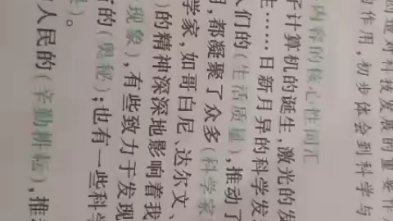 创造对科技发展的重要作
的作用，初步体会到科学与
内容的核心性词汇
子计算机的诞生，激光的发
生……日新月异的科学发
人们的(生活质量)，推动了
都凝聚了众多(科学家
学家，如哥白尼、达尔文、
)的精神深深地影响着我
现象)，有些致力于发现
的(奥秘)；也有一些科学
)。
人民的(辛勤耕耘)，推